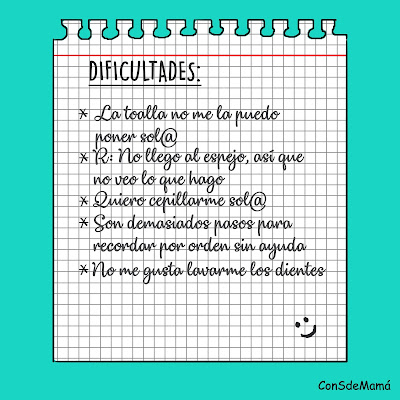 DIFICULTADES:
* La toalla no me la puedo
poner sol@
* R: No llego al espejo, así que
no veo lo que hago
* Quiero cepillarme sol@
* Son demasiados pasos para
recordar por orden sin ayuda
* No me gusta lavarme los dientes
ConSdeMamá